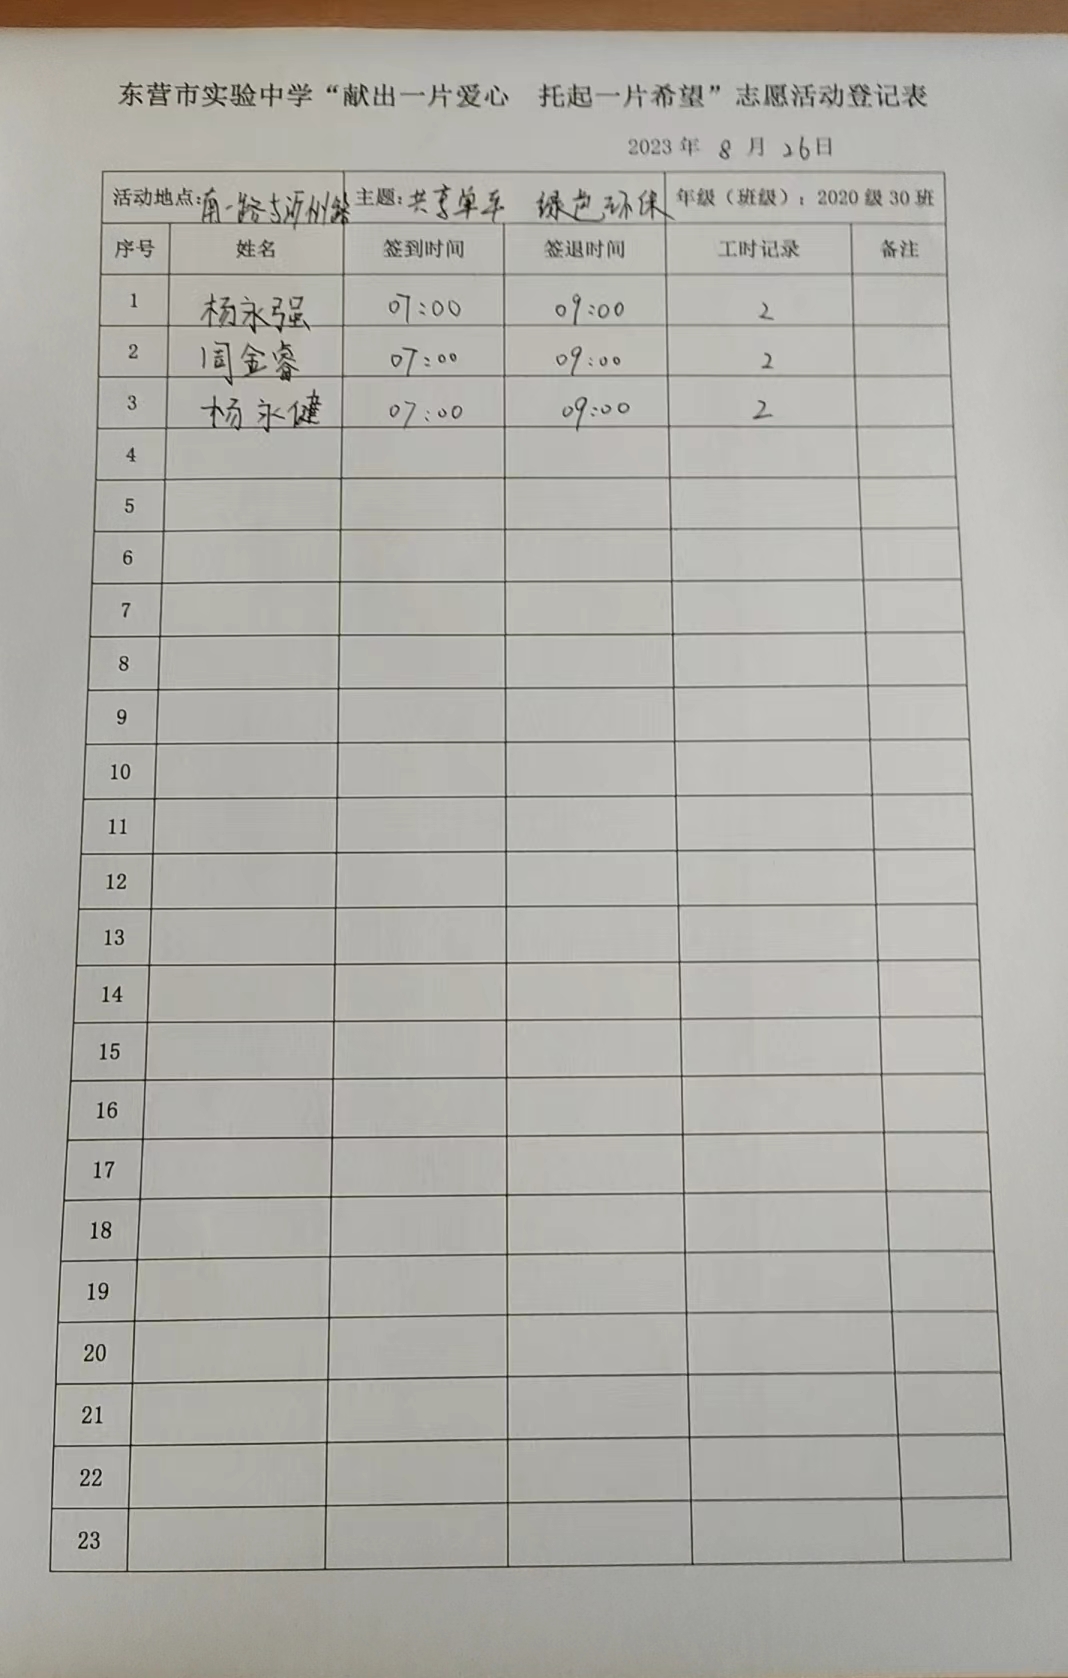 东营市实验中学“献出一片爱心 托起一片希望”志愿活动登记表
2023 年 8 月 26日
活动地点:南一路与沂州路 主题:共享单车 绿色环保 年级（班级）: 2020 级 30 班
序号 姓名 签到时间 签退时间 工时记录 备注
1 杨永强 07:00 09:00 2
2 周金睿 07:00 09:00 2
3 杨永健 07:00 09:00 2
4
5
6
7
8
9
10
11
12
13
14
15
16
17
18
19
20
21
22
23